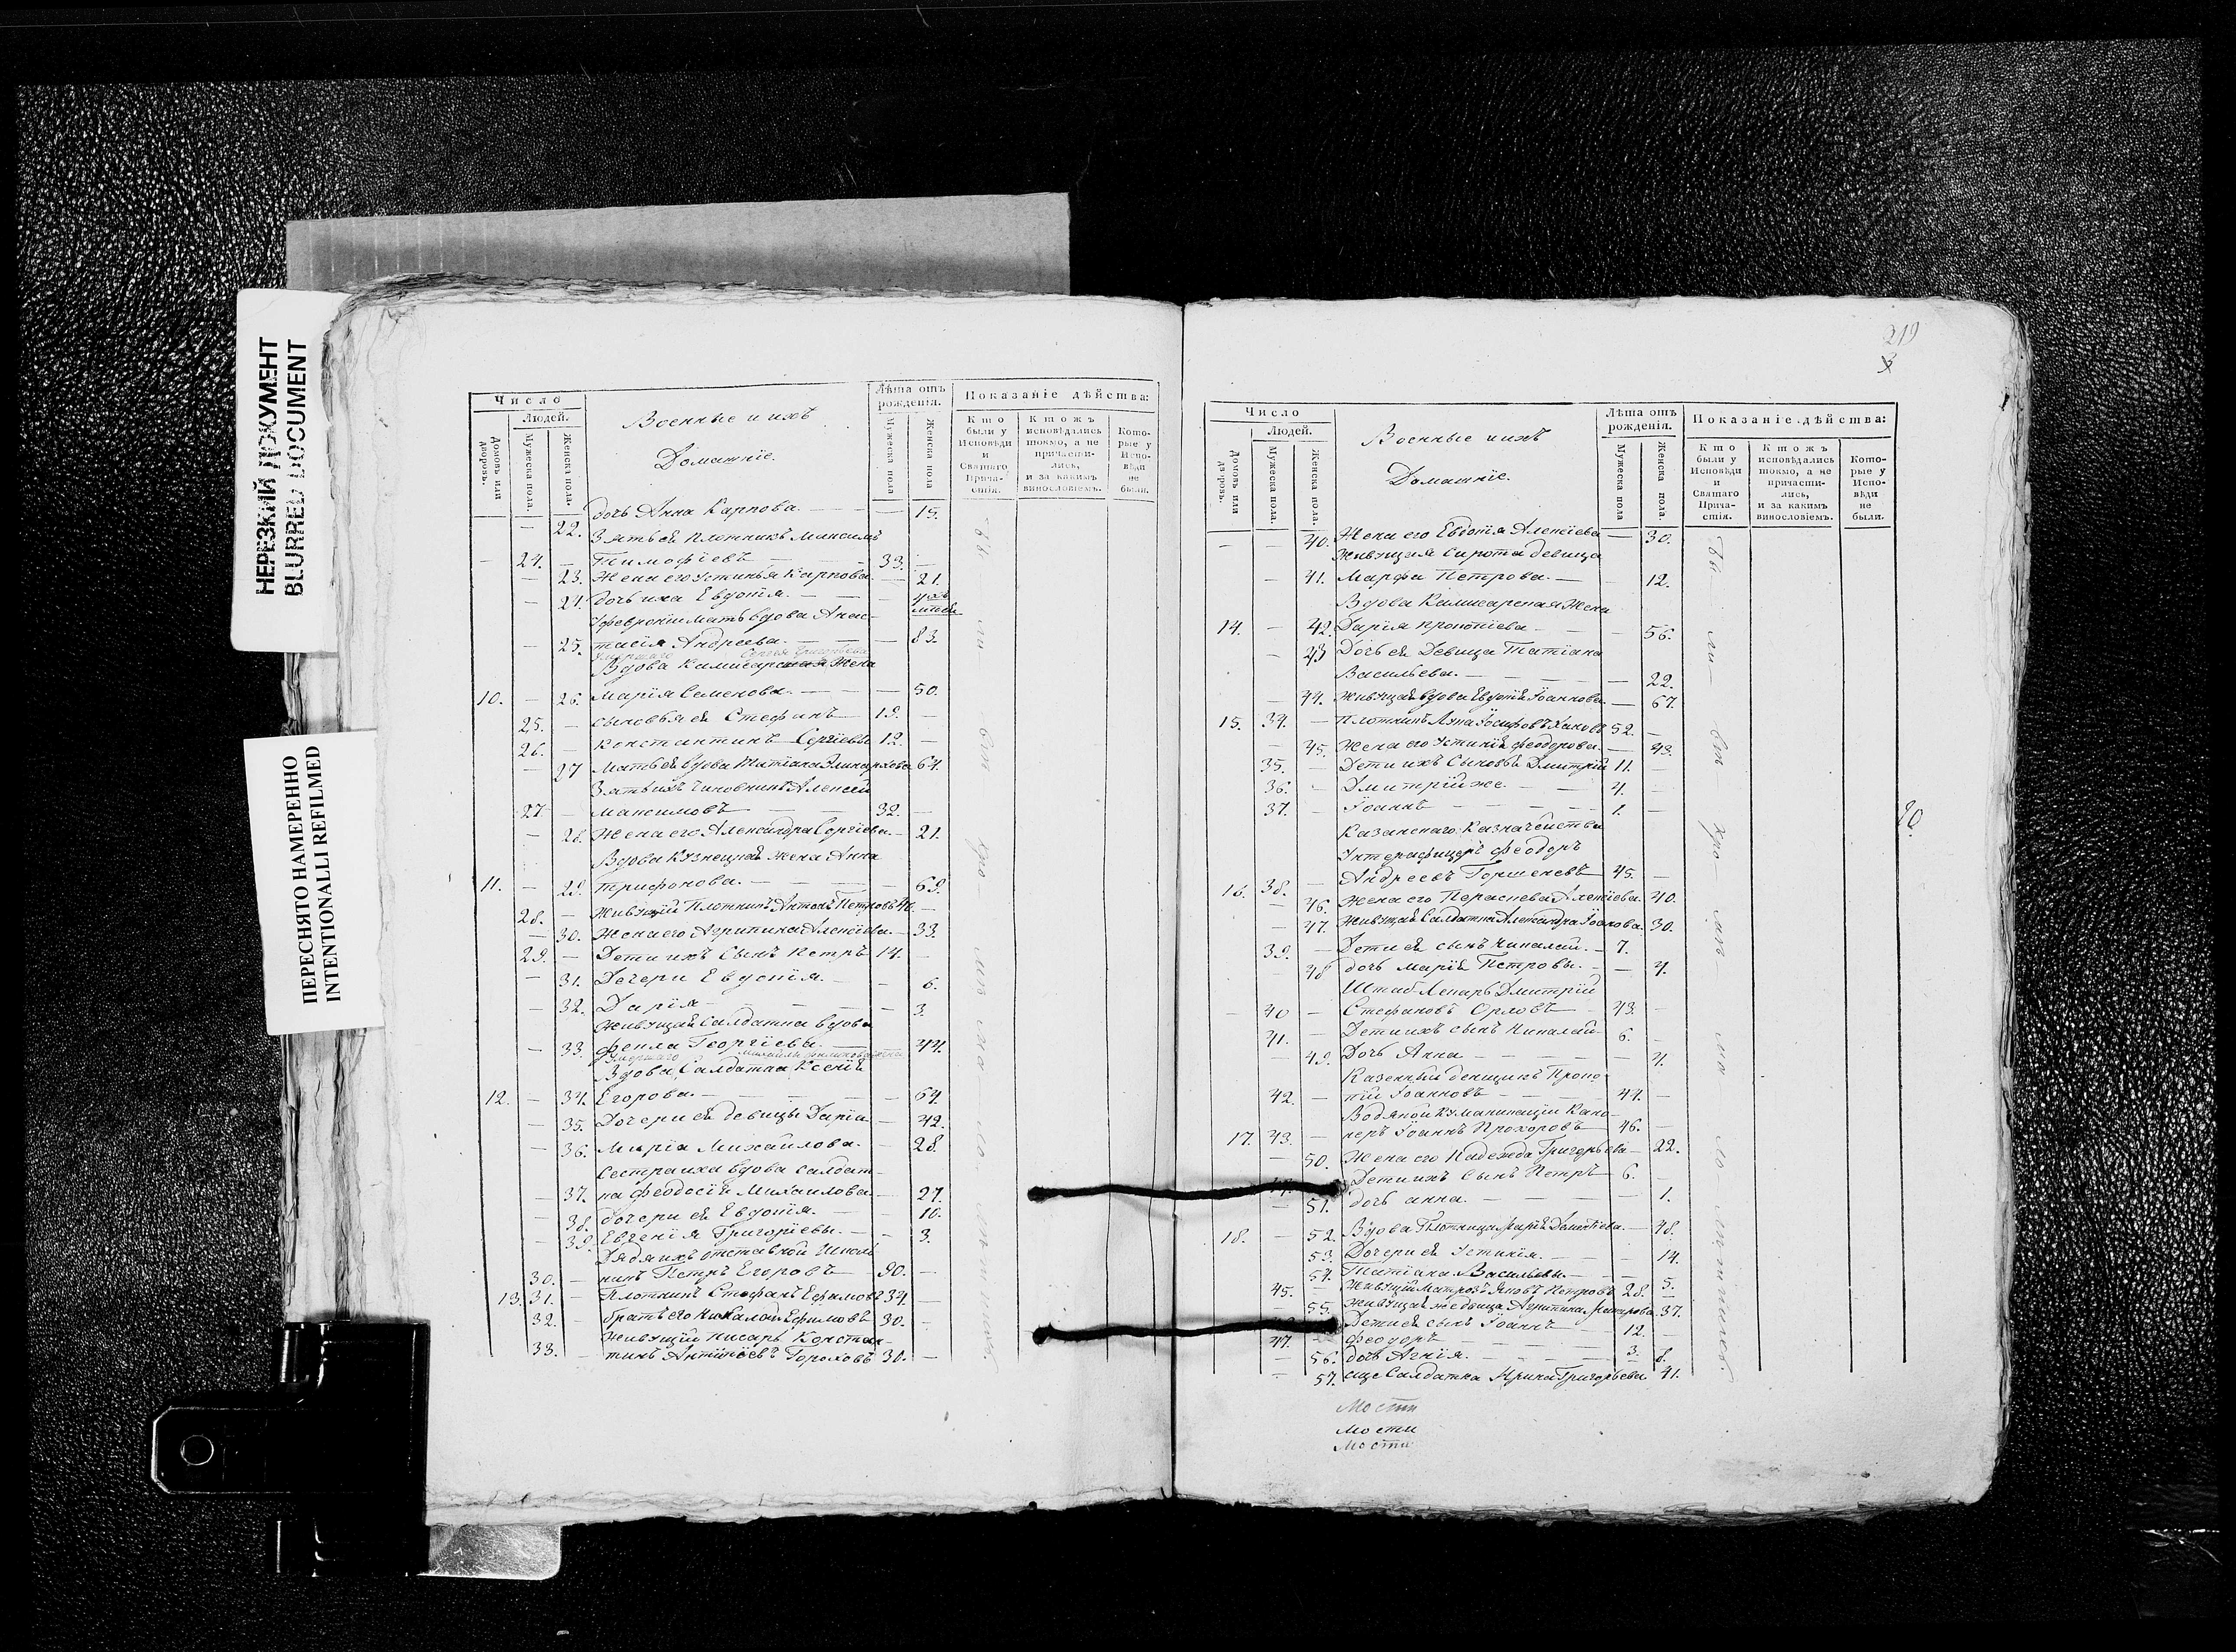 НЕРЕЗКИЙ ДОКУМЕНТ
BLURRED DOCUMENT
ПЕРЕСНЯТО НАМЕРЕННО
INTENTIONALLI REFILMED
Число
Людей.
Домовъ или дворовъ.
Мужеска пола.
Женска пола.
Военные и ихъ
Домашніе.
Лѣта отъ рожденія.
Мужеска пола
Женска пола
Показаніе дѣйства:
Кто были у Исповѣди и Святаго Причастія.
Ктожъ исповѣдались токмо, а не причастились, и за какимъ винословіемъ.
Которые у Исповѣди не были.
— 22. дочь Анна Карпова. — — 15.
Зять ея плотникъ Максимъ
— 24. — Тимофѣевъ — 33. —
— 23. Жена его Устинья Карпова — 21.
— 24. дочь ихъ Евдокія. —
Уфевроніи мать вдова Анас-
— 25. тасія Андреева. — — 83.
умершаго Сергія Григорьева
Вдова Камисарская Жена
10. — 26. Марія Семенова. — — 50.
25. — сыновья ея Стефанъ 19. —
26. — Константинъ Сергіевы 12. —
— 27 Мать ея вдова Татіана 64.
Зять ихъ чиновникъ Алексей
27 — Максимовъ — 32. —
— 28. Жена его Александра Сергіева. — 21.
Вдова Кузнецкая жена Анна
11. — 29. Трифонова. — — 69.
28. — Живущій Плотникъ Антонъ Петровъ 40. —
— 30. Жена его Агрипина Алексіева. — 33.
29. — Дети ихъ Сынъ Петръ 14. —
— 31. Дечери Евдокія. — — 6.
— 32. Дарія — — 3.
Живущая салдатка вдова
— 33. Фекла Георгіева. — 44.
умершаго
Вдова Салдатка Ксенія
12. — 34. Егорова. — — 64
— 35. Дочери ея девицы Дарія — 42.
— 36. Марія Михайлова. — 28
Сестра ихъ вдова салдат-
— 37. ка Феодосія Михаилова. — 27.
— 38. дочери ея Евдокія. — — 10.
— 39. Евгенія Григоріевы. — — 3.
Дядя ихъ отставной Школ-
30. — никъ Петръ Егоровъ — 90. —
13. 31. — Плотникъ Стефанъ Ефимовъ 34. —
32. — братъ его Николай Ефимовъ 30. —
Живущій писарь Констан-
33. — тинъ Антипіевъ Гороховъ 30. —
219
3
Число
Людей.
Домовъ или дворовъ.
Мужеска пола.
Женска пола.
Военные и ихъ
Домашніе.
Лѣта отъ рожденія.
Мужеска пола
Женска пола.
Показаніе дѣйства:
Кто были у Исповѣди и Святаго Причастія.
Ктожъ исповѣдались токмо, а не причастились, и за какимъ винословіемъ.
Которые у Исповѣди не были.
— — 40. Жена его Евдокія Алексіева — 30.
Живущая Сирота девица
— 41. Марфа Петрова. — 12.
Вдова Камисарская Жена
14. — 42. Дарія Прокопіева — 56.
— 43 Дочь ея Девица Татіана
Васильева. — — 22.
— 44. Живущая вдова Евдокія Іоаннова. — 67.
15. 34. — Плотникъ Лука Іосифовъ 52. —
— 45. Жена его Устинія Феодорова. — 43.
35. — Дети ихъ Сыновья Дмитрій 11. —
36. — Дмитрій же. — — 4. —
37. — Іоаннъ — — 1. —
Казанскаго Казначейства
Унтерафицеръ Феодоръ
16. 38. — Андреевъ Горшеневъ 45. —
— 46. Жена его Параскева Алексіева. 40.
— 47. Живущая Салдатка Александра Іоакова. 30.
39. — Дети ея сынъ Николай. — 7.
48 дочь Марія Петровы. — — 4.
Штаб-Лекарь Дмитрій
— 40 — Стефановъ Орловъ — 43. —
41. — Дети ихъ сынъ Николай 6. —
— 49. Дочь Анна — — — 4.
Казенный денщикъ Проко-
42. — пій Іоанновъ — — 44. —
Водяной Куманикаціи Кано-
17. 43. — неръ Іоаннъ Прохоровъ 46. —
— 50. Жена его Надежда Григорьева — 22.
Дети ихъ сынъ Петръ 6. —
— 51. дочь анна. — — — 1.
18. — 52. Вдова Плотница Марія — 48.
53. Дочери ея Устинія. — — 14.
54. Татіана Васильевы. — — 5.
45. — Живущій Матрозъ Яковъ Петровъ 28. —
— 55. Живущая же девица Агрипина 37.
Дети ея сынъ Іоаннъ — 12. —
47. Феодоръ — — 3. —
— 56. дочь Агнія. — — — 8.
— 57. еще Салдатка Ирина Григорьева 41.
Мости
Мости
Мости